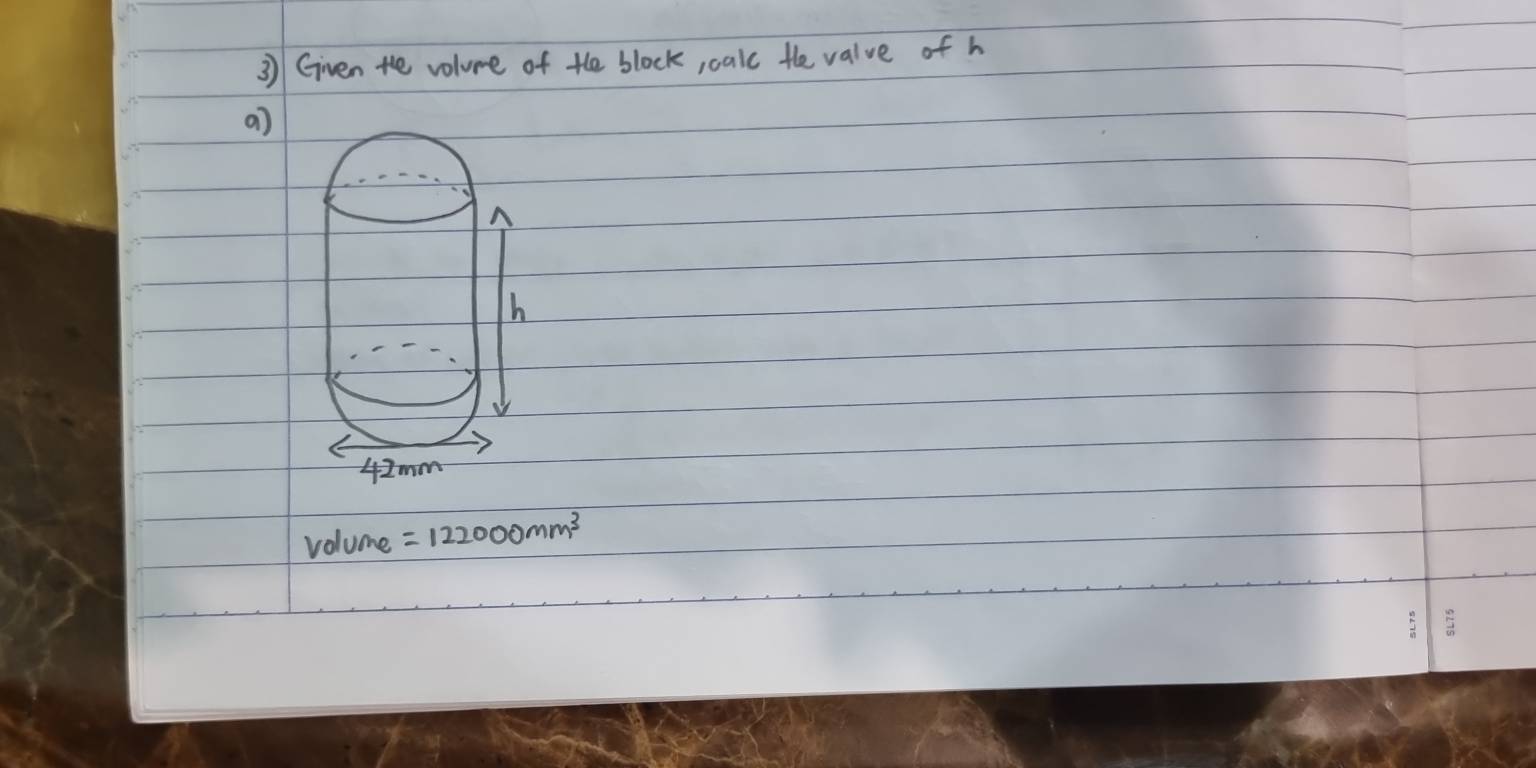 3) Given the volume of the block, calc the valve of h
a)
h
42mm
volume = 122000mm³
SL75
SL75